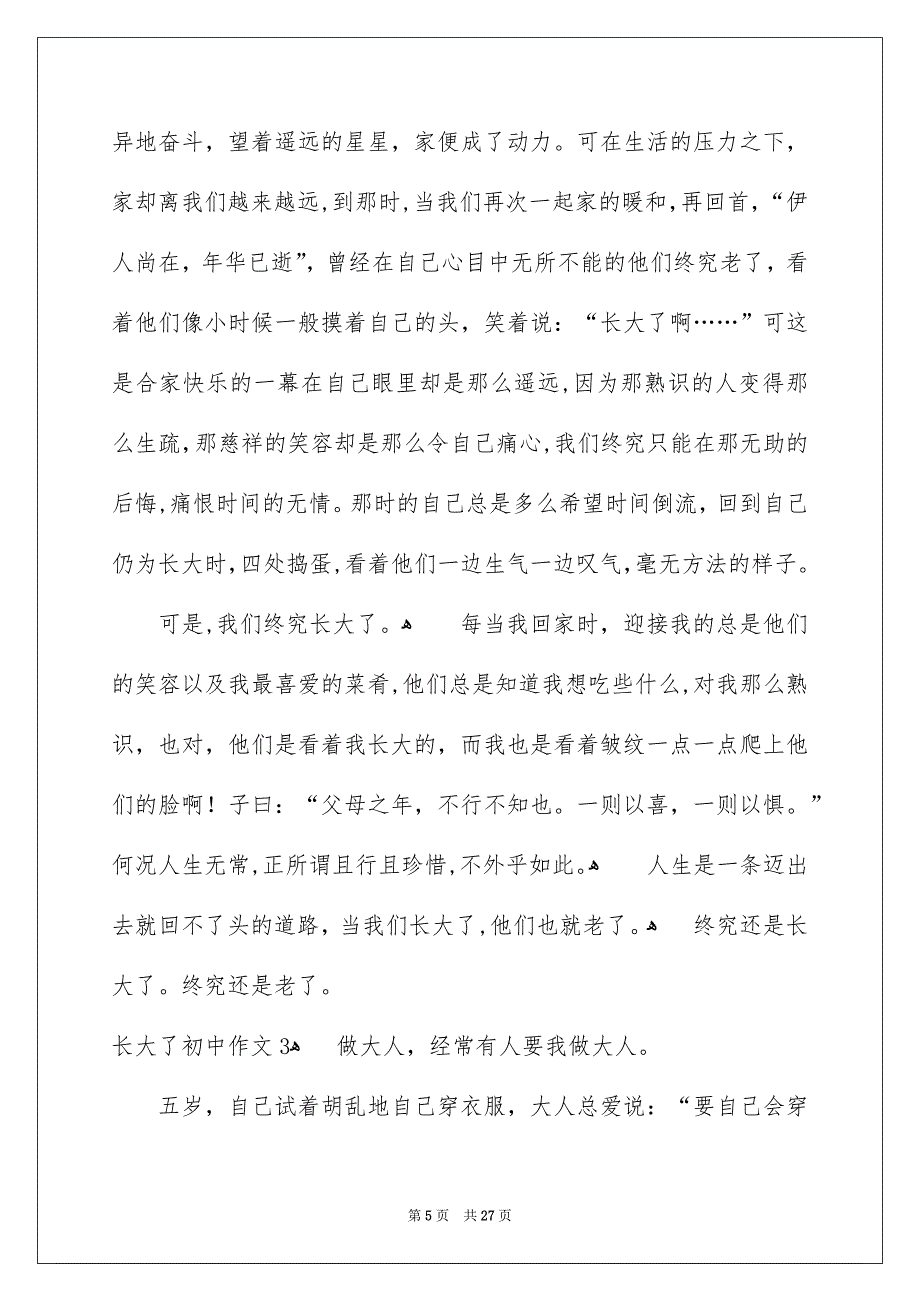 异地奋斗，望着遥远的星星，家便成了动力。可在生活的压力之下，
家却离我们越来越远,到那时,当我们再次一起家的暖和,再回首，“伊
人尚在，年华已逝”，曾经在自己心目中无所不能的他们终究老了，看
着他们像小时候一般摸着自己的头，笑着说：“长大了啊……”可这
是合家快乐的一幕在自己眼里却是那么遥远,因为那熟识的人变得那
么生疏,那慈祥的笑容却是那么令自己痛心,我们终究只能在那无助的
后悔,痛恨时间的无情。那时的自己总是多么希望时间倒流，回到自己
仍为长大时,四处捣蛋,看着他们一边生气一边叹气,毫无方法的样子。
可是,我们终究长大了。ﻫ 每当我回家时，迎接我的总是他们
的笑容以及我最喜爱的菜肴,他们总是知道我想吃些什么,对我那么熟
识，也对，他们是看着我长大的，而我也是看着皱纹一点一点爬上他
们的脸啊！子曰：“父母之年，不行不知也。一则以喜，一则以惧。”
何况人生无常,正所谓且行且珍惜,不外乎如此。ﻫ 人生是一条迈出
去就回不了头的道路，当我们长大了,他们也就老了。ﻫ 终究还是长
大了。终究还是老了。
长大了初中作文 3ﻫ 做大人，经常有人要我做大人。
五岁，自己试着胡乱地自己穿衣服，大人总爱说：“要自己会穿
第 5 页 共 27 页